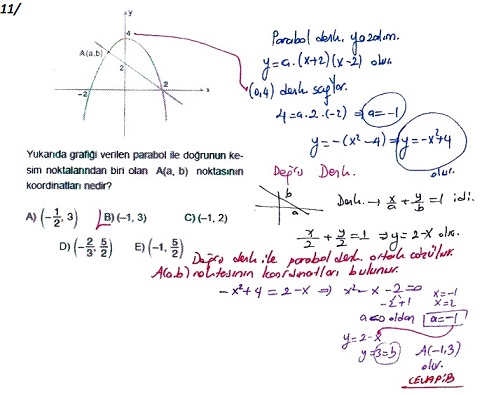 11/
y
4
A(a,b)
2
-2
2
x
Yukarıda grafiği verilen parabol ile doğrunun ke-
sim noktalarından biri olan A(a, b) noktasının
koordinatları nedir?
A) (-1/2, 3) B) (-1, 3) C) (-1, 2)
D) (-2/3, 5/2) E) (-1, 5/2)
Parabol denk. yazalım.
y=a.(x+2)(x-2) olur.
(0,4) denk sağlar.
4=a.2.(-2) ⇒ a=-1
y=-(x²-4) ⇒ y=-x²+4
olur.
Doğru Denk.
b
a
Denk. → x/a + y/b = 1 idi.
x/2 + y/2 = 1 ⇒ y=2-x olur.
Doğru denk ile parabol denk. ortak çözülür.
A(a,b) noktasının koordinatları bulunur.
-x²+4 = 2-x ⇒ x²-x-2=0
-2 +1
x=-1
x=2
a<0 oldan a=-1
y=2-x
y=3=b
A(-1,3)
olur.
CEVAP:B